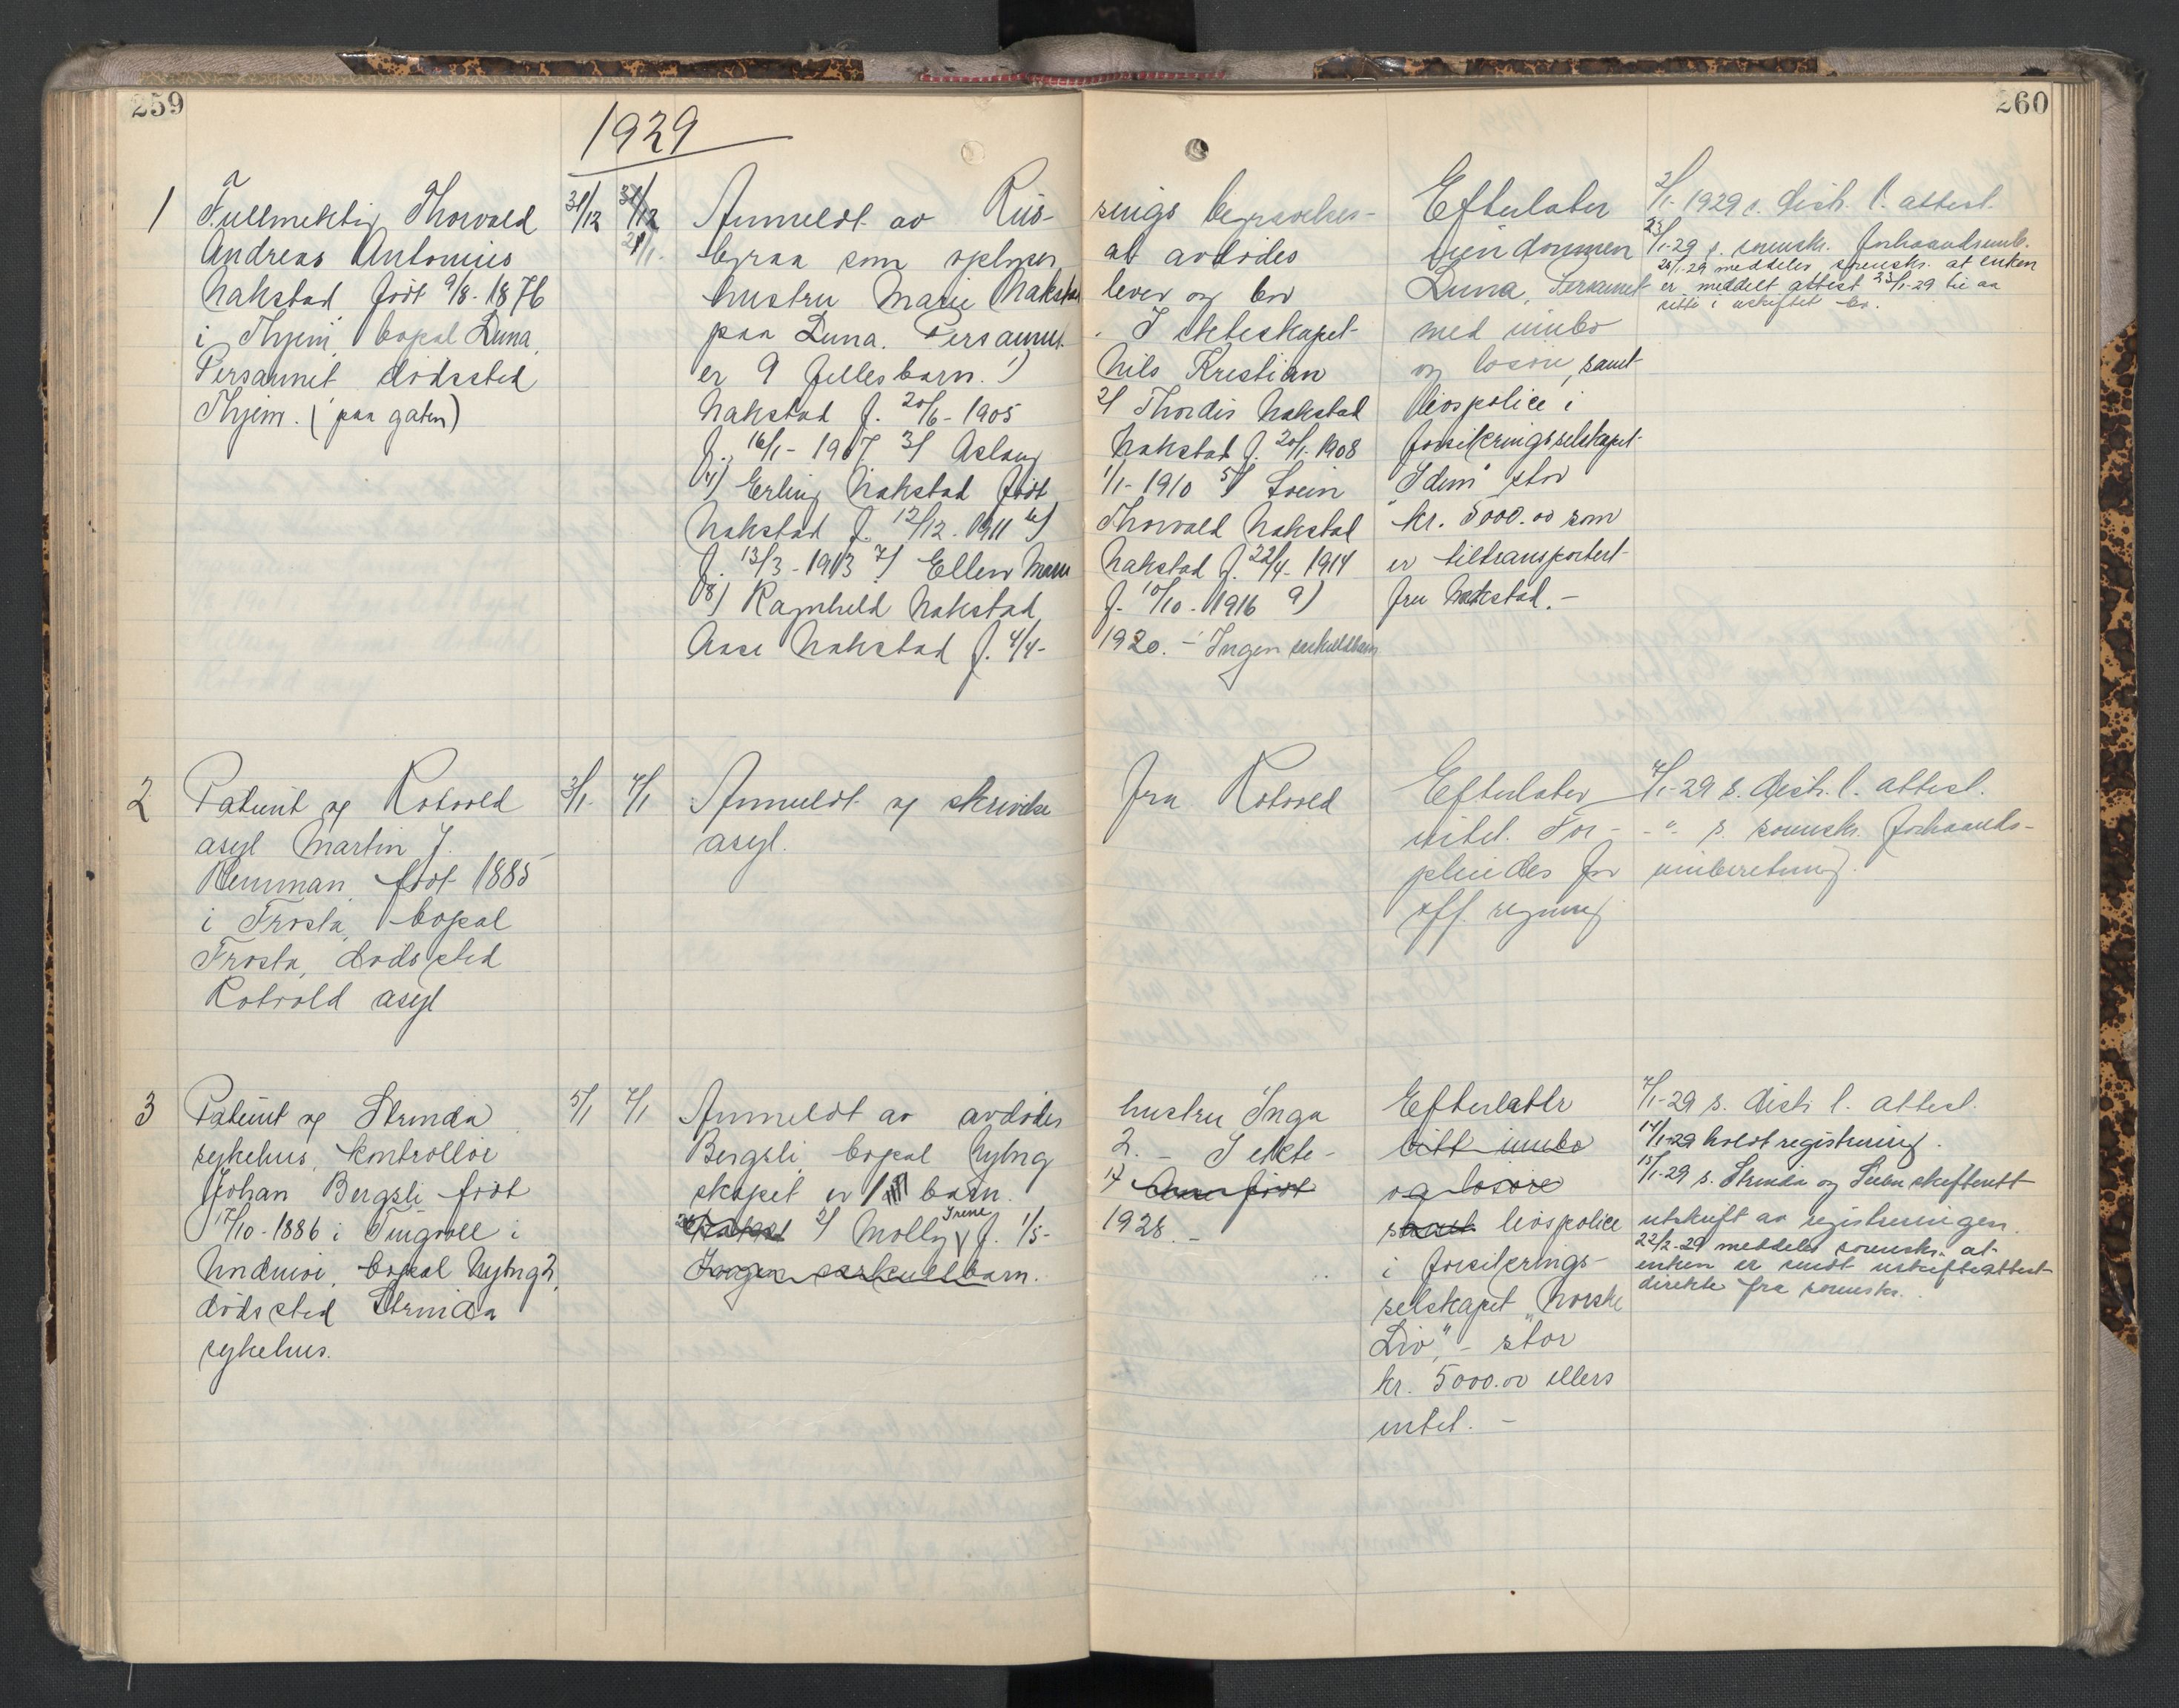 259
260
1929
1
a
Fullmektig Thorvald
Andreas Antonius
Nakstad, født 9/8-1876
i Thjem, bopal Luna,
Persaunet dødssted
Thjem. (paa gaten)
31/12
31/12
2/1.
Anmeldt av Riis-
byraa som oplyser
hustru Marie Nakstad
paa Luna. Persaunet
er 9 fellesbarn. 1)
Nakstad f. 20/6-1905
f. 16/1-1907 3) Aslaug
4) Erling Nakstad født
Nakstad f. 12/12-1911 6)
f. 13/3-1913 7) Ellen Marie
8) Ragnhild Nakstad
Aase Nakstad f. 4/4-
sings begravelses-
at avdødes
lever og bor
. I ekteskapet
Nils Kristian
2) Thordis Nakstad
Nakstad f. 20/1-1908
1/1-1910 5) Svein
Thorvald Nakstad
Nakstad f. 22/4-1914
f. 10/10-1916 9)
1920. - Ingen serkuldbarn
Efterlater
eiendommen
Luna, Persaunet
med innbo
og løsøre, samt
livspolice i
forsikringsselskapet
"Idun" stor
kr. 5000.00 som
er tiltransportert
fru Nakstad. -
2/1-1929 s. dish. l. attest.
23/1-29 s. sorensk. forhaandsinnb.
28/1-29 meddeler sorensk. at enken
er meddelt attest 23/1-29 til aa
sitte i uskiftet bo.
2
Patient og Rotvold
asyl Martin J.
Remman, født 1885
i Frosta, bopal
Frosta, dødssted
Rotvold asyl
3/1.
4/1
Anmeldt og skrivelse
asyl.
fra Rotvold
Efterlater
intet. For-
pleiedes for
off. regning
4/1-29 s. dish. l. attest.
-"- s. sorensk. forhaands-
innberetning.
3
Patient og Strinda
sykehus, kontrollør
Johan Bergsli født
17/10-1886 i Tingvoll i
Nordmøre, bopal Nybrg 2,
dødssted Strinda
sykehus.
5/1
7/1
Anmeldt av avdødes
Bergsli, bopal Nybrg
skapet er 1 barn.
2) Molly Irene f. 1/5-
Ingen serkullbarn.
hustru Inga
2. - I ekte-
1) Anna født
1928. -
Efterlater
litt innbo
og løsøre
samt livspolice
i forsikrings-
selskapet "Norske
Liv", - stor
kr. 5000.00 ellers
intet. -
7/1-29 s. dish. l. attest.
14/1-29 holdt registrering.
15/1-29 s. Strinda og Selbu skifterett
utskrift av registreringen.
22/2-29 meddeler sorensk. at
enken er sendt uskifteattest
direkte fra sorensk.